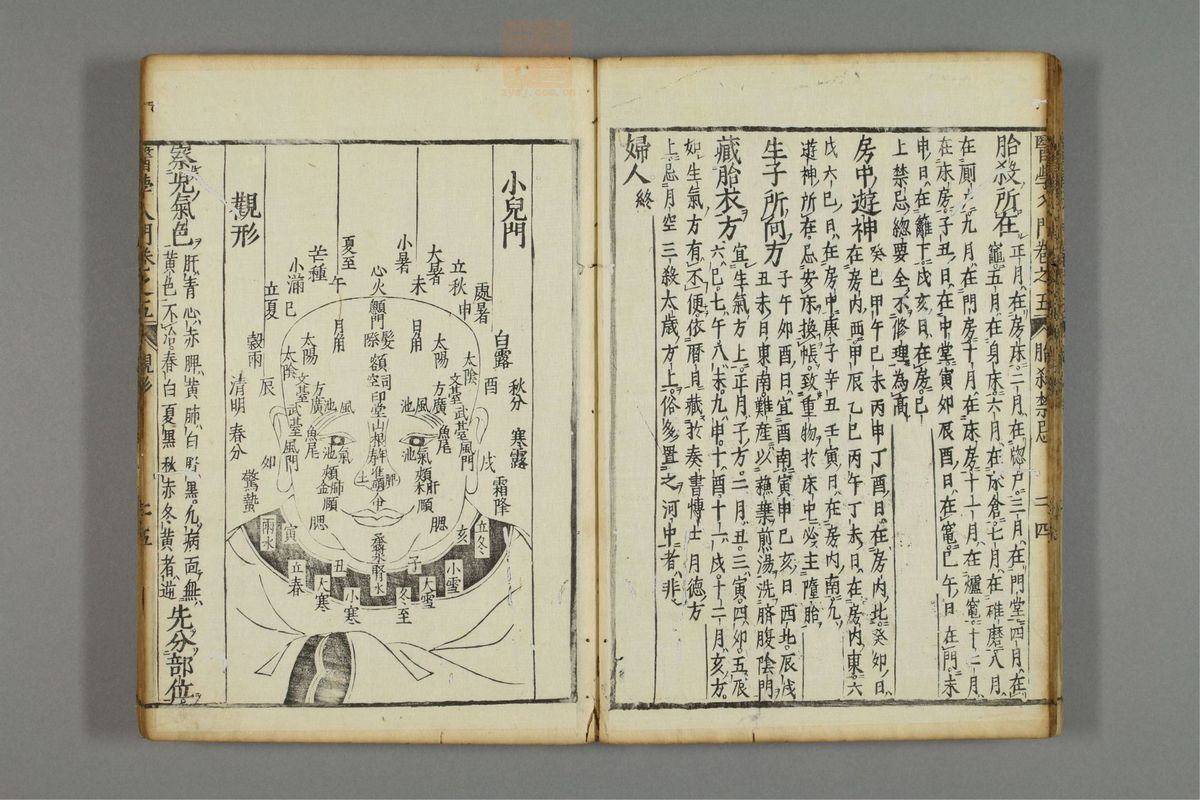 醫學入門卷之五
胎殺禁忌
二四
胎殺所在
正月在房床二月在窓戶三月在門堂四月在
竈五月在身床六月在床倉七月在碓磨八月
在厠九月在門房十月在床房十一月在爐竈十二月
在床房子丑日在中堂寅卯辰酉日在竈巳午日在門未
申日在籬下戌亥日在房已
上禁忌緫要全不修理為髙
房中遊神
癸巳甲午巳未丙申丁酉日在房内北癸卯日
在房内西甲辰乙巳丙午丁未日在房内東六
戊六巳日在房中庚子辛丑壬寅日在房内南九
遊神所在忌安床換帳致重物扵床中必主墮胎
生子所向方
子午卯酉日宜酉南寅申巳亥日西北辰戌
丑未日東南難産以蘓葉煎湯洗臍腹陰門
藏胎衣方
宜生氣方上正月子方二月丑三寅四卯五辰
六巳七午八未九申十酉十一戌十二月亥方
如生氣方有不便依曆月藏扵奏書博士月德方
上忌月空三殺太歲方上俗多置之河中者非
婦人終
小兒門
觀形
心火
顖門
髮際
額
司空
印堂
山根
年
準
土
脾
頦
腎水
日角
月角
太陽
太陽
太陰
太陰
文䑓
文䑓
武䑓
武䑓
方廣
方廣
風池
風池
魚尾
魚尾
風門
風門
氣池
氣池
頰
肝
木
頰
肺
金
頤
頤
腮
腮
夏至
午
小暑
大暑
未
立秋
處暑
申
白露
酉
秋分
寒露
戌
霜降
立冬
亥
小雪
大雪
子
冬至
小寒
丑
大寒
立春
寅
雨水
驚蟄
卯
春分
清明
辰
穀雨
立夏
巳
小滿
芒種
察兒氣色
肝青心赤脾黃肺白腎黑凢病面無
黃色不冾春白夏黑秋赤冬黃者逆
先分部位
觀形